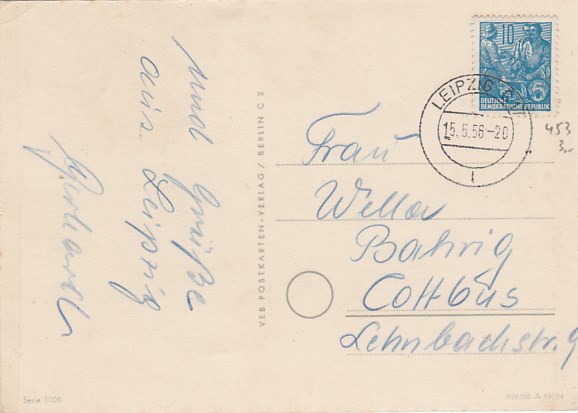 und Grüße
aus Leipzig
Gerhard
VEB POSTKARTEN-VERLAG / BERLIN C 2
10
DEUTSCHE
DEMOKRATISCHE REPUBLIK
5
LEIPZIG
15.5.56-20
453
3,-
Frau
Bahrig
Cottbus
Lehnbachstr. 9
Serie 5000